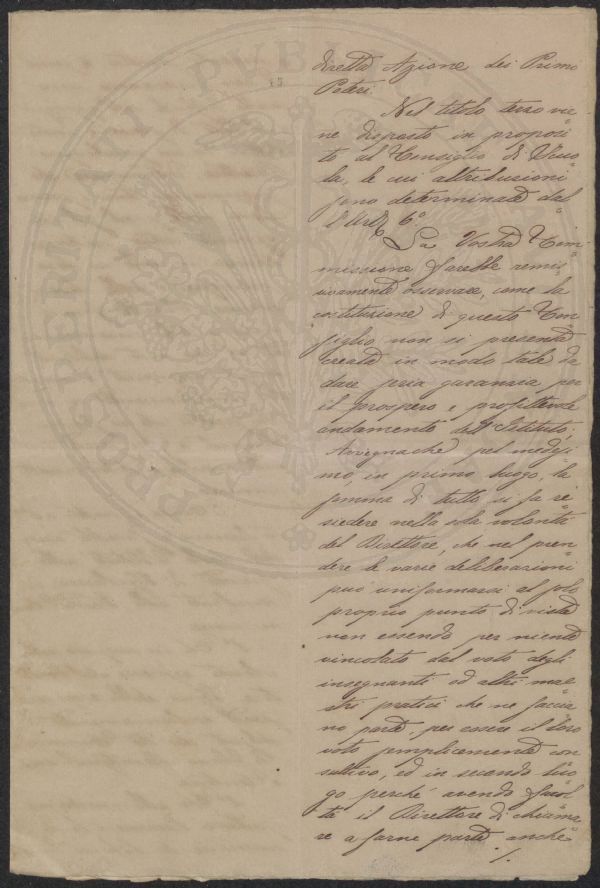 diretta Azione dei Primo
Poteri.
Nel titolo terzo vie
ne disposto in proposi
to al Consiglio di Scuo
la, le cui attribuzioni
sono determinate dal
l'Art. 6º.
La Vostra Com
missione farebbe remis
sivamente osservare, come la
costituzione di questo Con
siglio non si presenta
creata in modo tale da
dare seria garanzia per
il prospero e profittevole
andamento dell'Istituto,
Avvegnachè pel medesi
mo, in primo luogo, la
somma di tutto si fa ri
siedere nella sola volontà
del Direttore, che nel pren
dere le varie deliberazioni
può uniformarsi al solo
proprio punto di vista
non essendo per niente
vincolato dal voto degli
insegnanti ed altri mae
stri pratici che ne faccia
no parte, per essere il loro
voto semplicemente con
sultivo, ed in secondo luo
go perchè avendo facol
tà il Direttore di chiama
re a farne parte anche
./.
PROSPERITATI PUBLICAE